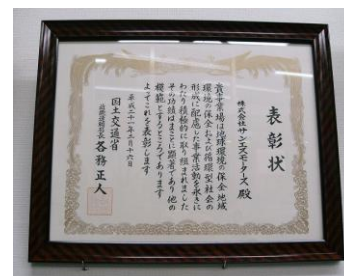 表彰状
株式会社サンエスモータース殿
貴事業場は地球環境の保全地域
環境の保全および循環型社会の
形成に配慮した事業活動を永きに
わたり積極的に取り組まれました
その功績はまことに顕著であり他の
模範とするところであります
よってこれを表彰します
平成二十一年二月十六日
国土交通省
各務正人